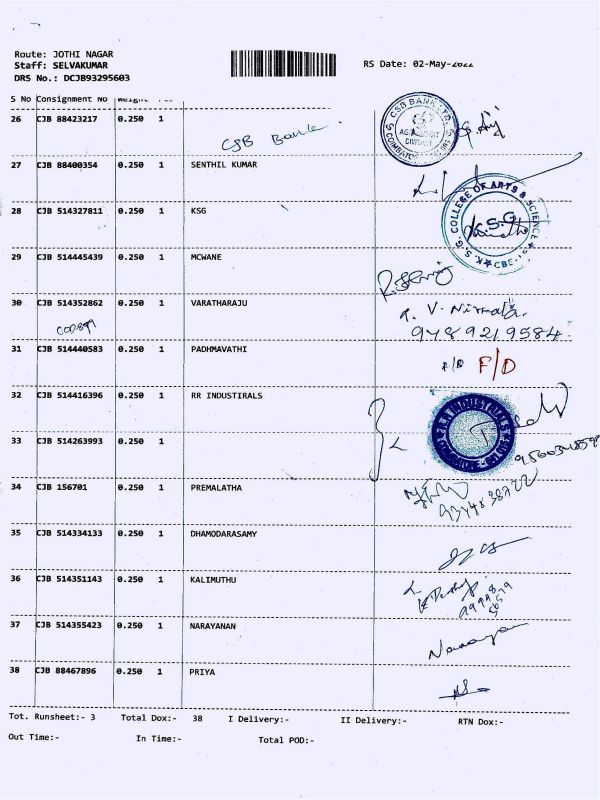 Route: JOTHI NAGAR
Staff: SELVAKUMAR
DRS No.: DCJB93295603
RS Date: 02-May-2022
S No Consignment No Weight Pcs
26 CJB 88423217 0.250 1 CSB Bank
CSB BANK LTD.
DIVISION
27 CJB 88400354 0.250 1 SENTHIL KUMAR
28 CJB 514327811 0.250 1 KSG
K.S.G. COLLEGE OF ARTS & SCIENCE
K.S.G.
29 CJB 514445439 0.250 1 MCWANE
30 CJB 514352862 0.250 1 VARATHARAJU
V. Nirmala
9789219584
31 CJB 514440583 0.250 1 PADHMAVATHI F/D
32 CJB 514416396 0.250 1 RR INDUSTIRALS
33 CJB 514263993 0.250 1
34 CJB 156701 0.250 1 PREMALATHA
35 CJB 514334133 0.250 1 DHAMODARASAMY
36 CJB 514351143 0.250 1 KALIMUTHU
37 CJB 514355423 0.250 1 NARAYANAN Narayan
38 CJB 88467896 0.250 1 PRIYA
Tot. Runsheet:- 3 Total Dox:- 38 I Delivery:- II Delivery:- RTN Dox:-
Out Time:- In Time:- Total POD:-